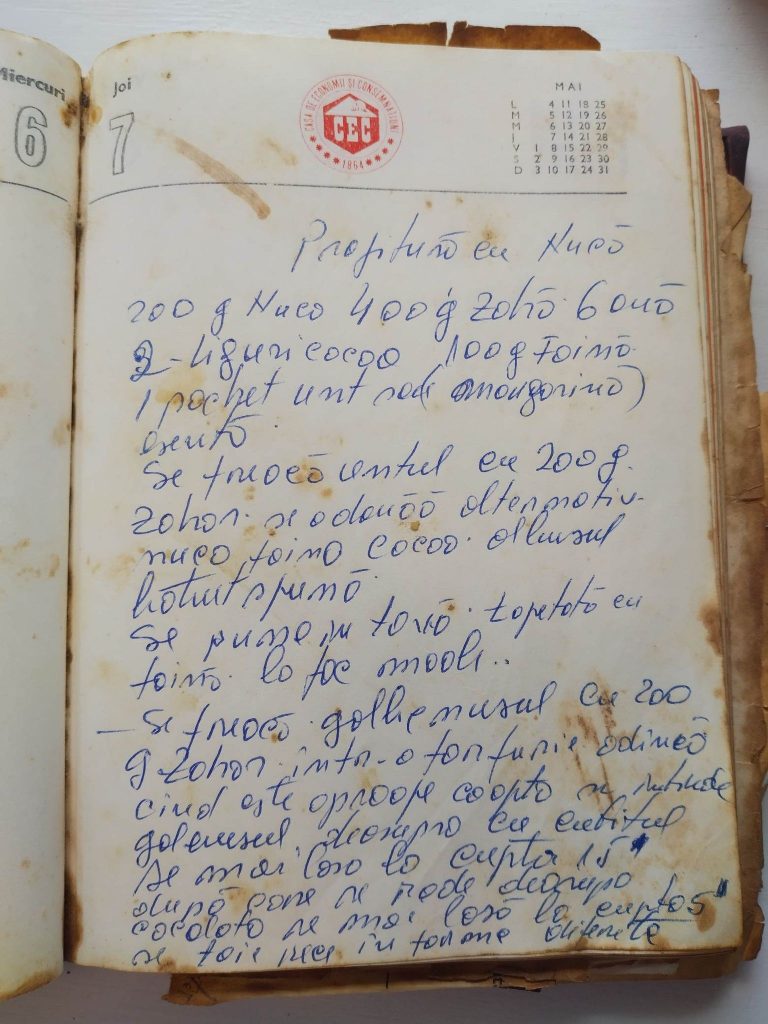 Miercuri
6
Joi
7
CASA DE ECONOMII ȘI CONSEMNAȚIUNI
CEC
1864
MAI
L 4 11 18 25
M 5 12 19 26
M 6 13 20 27
J 7 14 21 28
V 1 8 15 22 29
S 2 9 16 23 30
D 3 10 17 24 31
Prajitură cu Nucă
200 g Nuca 400 g Zahă. 6 ouă
2 - liguri cacao 100g Făină
1 pachet unt sau (margarină)
esență
Se freacă untul cu 200 g.
Zahar. se adaugă alternativ
nuca făina cacao. albusul
batut spumă
Se pune in tavă. tapetată cu
făină. la foc moale..
— Se freacă. galbenusul cu 200
g Zahar. într-o farfurie adincă
cind este aproape coapta se intinde
galenusul, deasupra cu cutitul
se mai lasa la cupta 15"
după care se rade deasupra
cocolata se mai lasă la cupto 5"
se taie rece în forme diferite